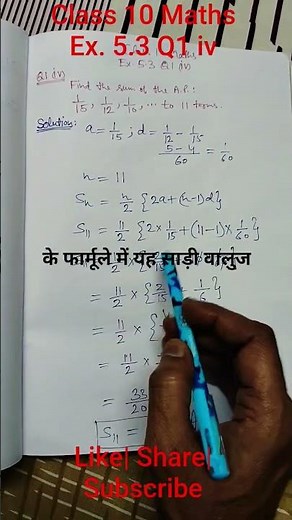 Class 10 Maths
Ex. 5.3 Q1 iv
Ex. 5.3 Q1 (iv)
Q1 (iv) Find the sum of the A.P.:
1/15, 1/12, 1/10, ... to 11 terms.
Solution: a = 1/15 ; d = 1/12 - 1/15
5-4/60 = 1/60
n = 11
Sn = n/2 {2a+(n-1)d}
S11 = 11/2 {2×1/15+(11-1)×1/60}
के फार्मूले में यह साड़ी वालुज
= 11/2 × {2/15 + 1/6}
= 11/2 × {
= 11/2 ×
= 33/20
S11 =
Like| Share|
Subscribe